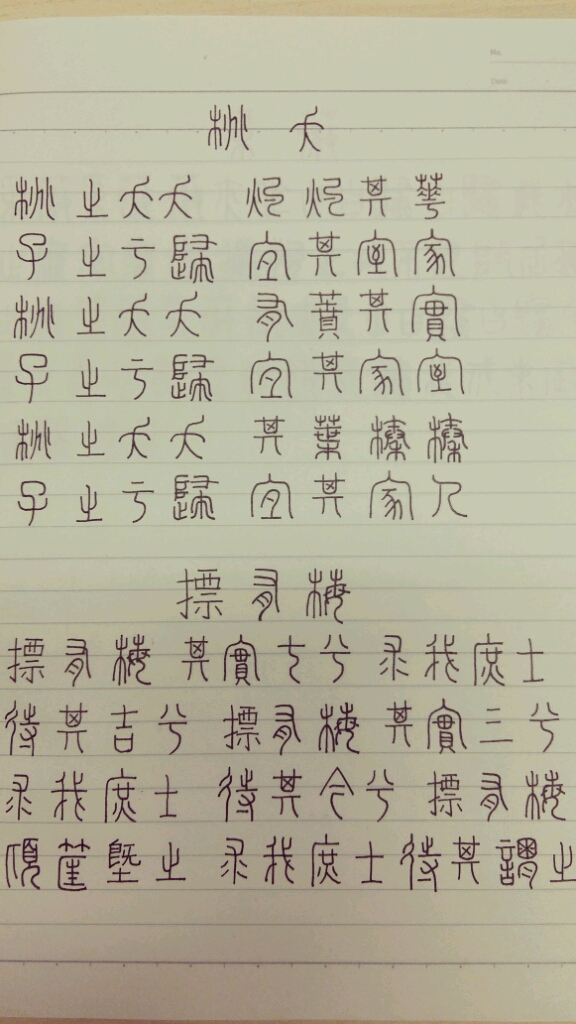 No.
Date
桃 夭
桃之夭夭 灼灼其華
子之于歸 宜其室家
桃之夭夭 有蕡其實
子之于歸 宜其家室
桃之夭夭 其葉榛榛
子之于歸 宜其家人
摽有梅
摽有梅 其實七兮 求我庶士
待其吉兮 摽有梅 其實三兮
求我庶士 待其今兮 摽有梅
頃筐塈之 求我庶士 待其謂之